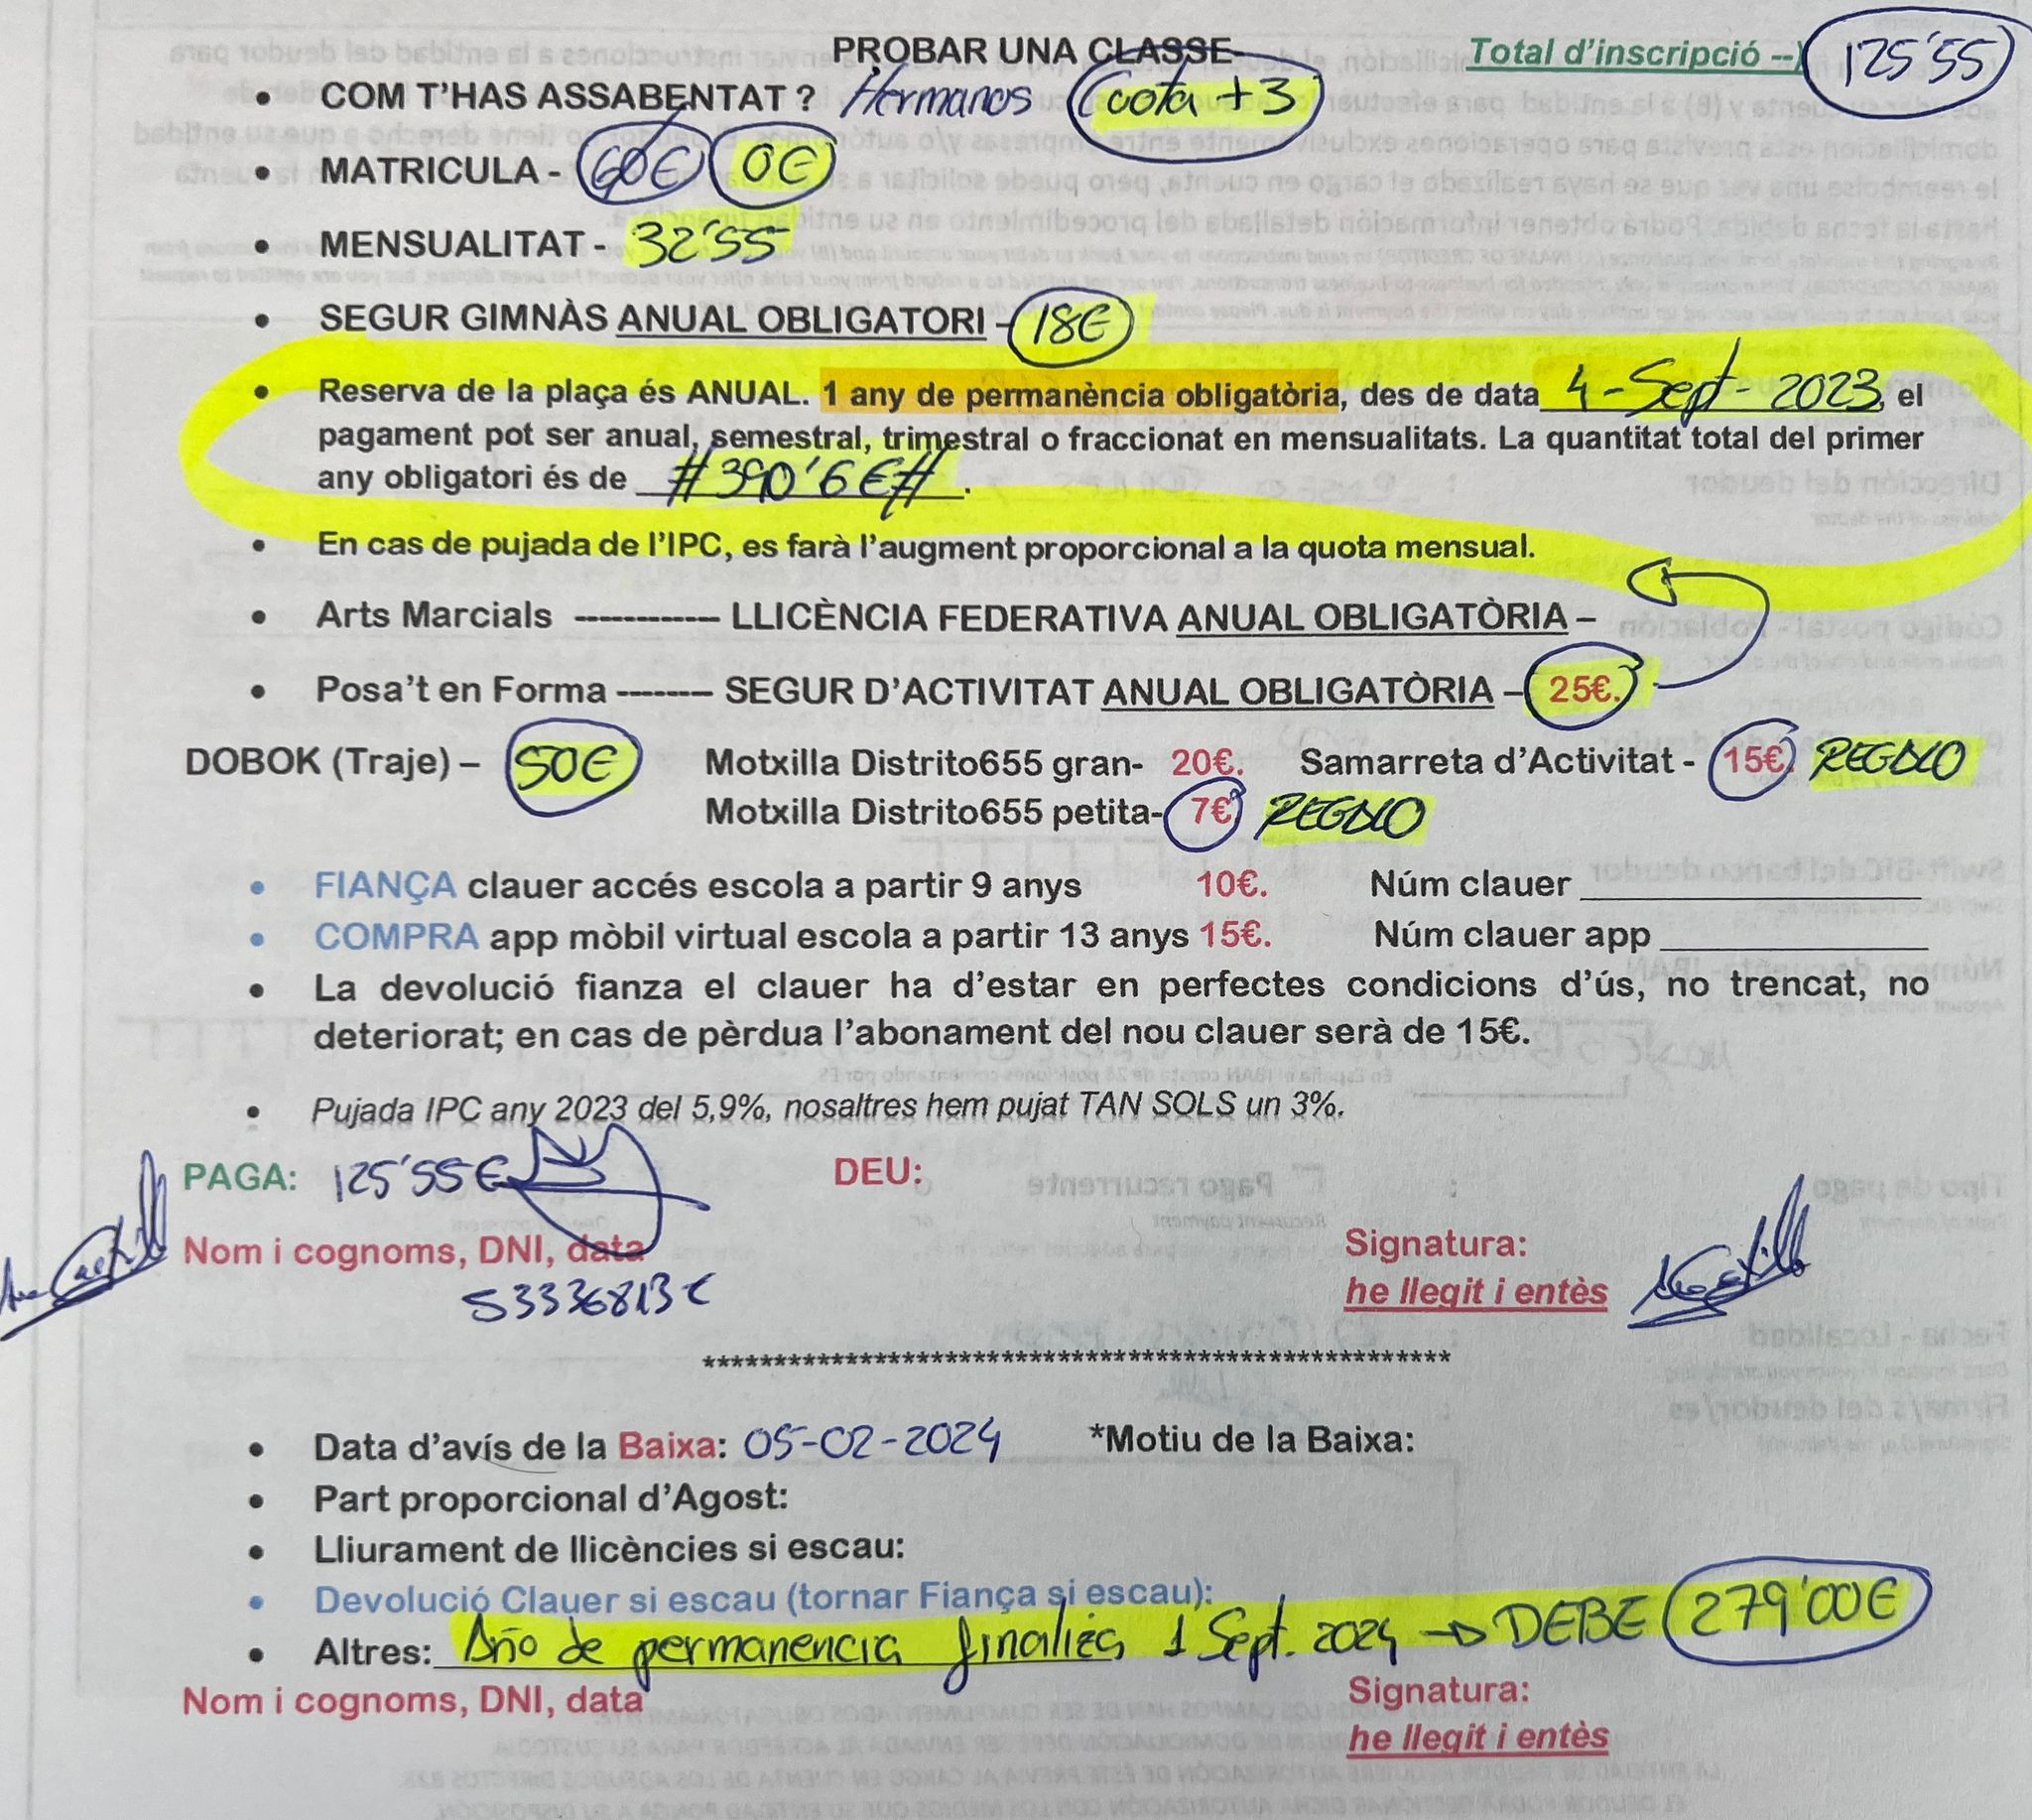 PROBAR UNA CLASSE- Total d'inscripció --) 125'55
• COM T'HAS ASSABENTAT ? Hermanos Cuota +3
• MATRICULA - 60€ 0€
• MENSUALITAT - 32'55
• SEGUR GIMNÀS ANUAL OBLIGATORI - 18€
• Reserva de la plaça és ANUAL. 1 any de permanència obligatòria, des de data 4-Sept-2023, el
pagament pot ser anual, semestral, trimestral o fraccionat en mensualitats. La quantitat total del primer
any obligatori és de #390'6€#.
• En cas de pujada de l'IPC, es farà l'augment proporcional a la quota mensual.
• Arts Marcials ------------ LLICÈNCIA FEDERATIVA ANUAL OBLIGATÒRIA –
• Posa't en Forma -------- SEGUR D'ACTIVITAT ANUAL OBLIGATÒRIA – 25€.
DOBOK (Traje) – 50€ Motxilla Distrito655 gran- 20€. Samarreta d'Activitat - 15€. REGALO
Motxilla Distrito655 petita- 7€. REGALO
• FIANÇA clauer accés escola a partir 9 anys 10€. Núm clauer
• COMPRA app mòbil virtual escola a partir 13 anys 15€. Núm clauer app
• La devolució fianza el clauer ha d'estar en perfectes condicions d'ús, no trencat, no
deteriorat; en cas de pèrdua l'abonament del nou clauer serà de 15€.
• Pujada IPC any 2023 del 5,9%, nosaltres hem pujat TAN SOLS un 3%.
PAGA: 125'55€ DEU:
Nom i cognoms, DNI, data Signatura:
53336813C he llegit i entès
****************************************************
• Data d'avís de la Baixa: 05-02-2024 *Motiu de la Baixa:
• Part proporcional d'Agost:
• Lliurament de llicències si escau:
• Devolució Clauer si escau (tornar Fiança si escau):
• Altres: Año de permanencia finaliza 1 Sept. 2024 → DEBE 279'00€
Nom i cognoms, DNI, data Signatura:
he llegit i entès